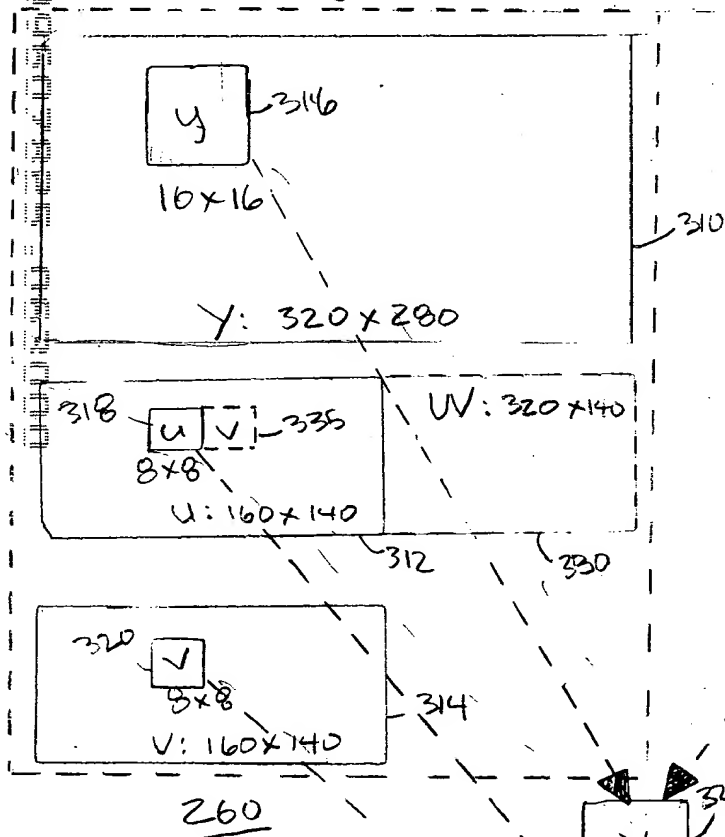 y
316
16x16
310
Y: 320 x 280
318
u
v
335
UV: 320 x 140
8x8
U: 160 x 140
312
330
320
v
8x8
314
V: 160 x 140
260